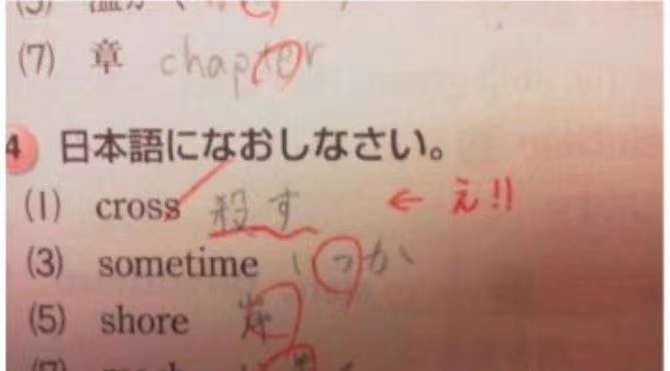 (7) 章 chapter
4 日本語になおしなさい。
(1) cross 殺す ← え!!
(3) sometime いつか
(5) shore 岸